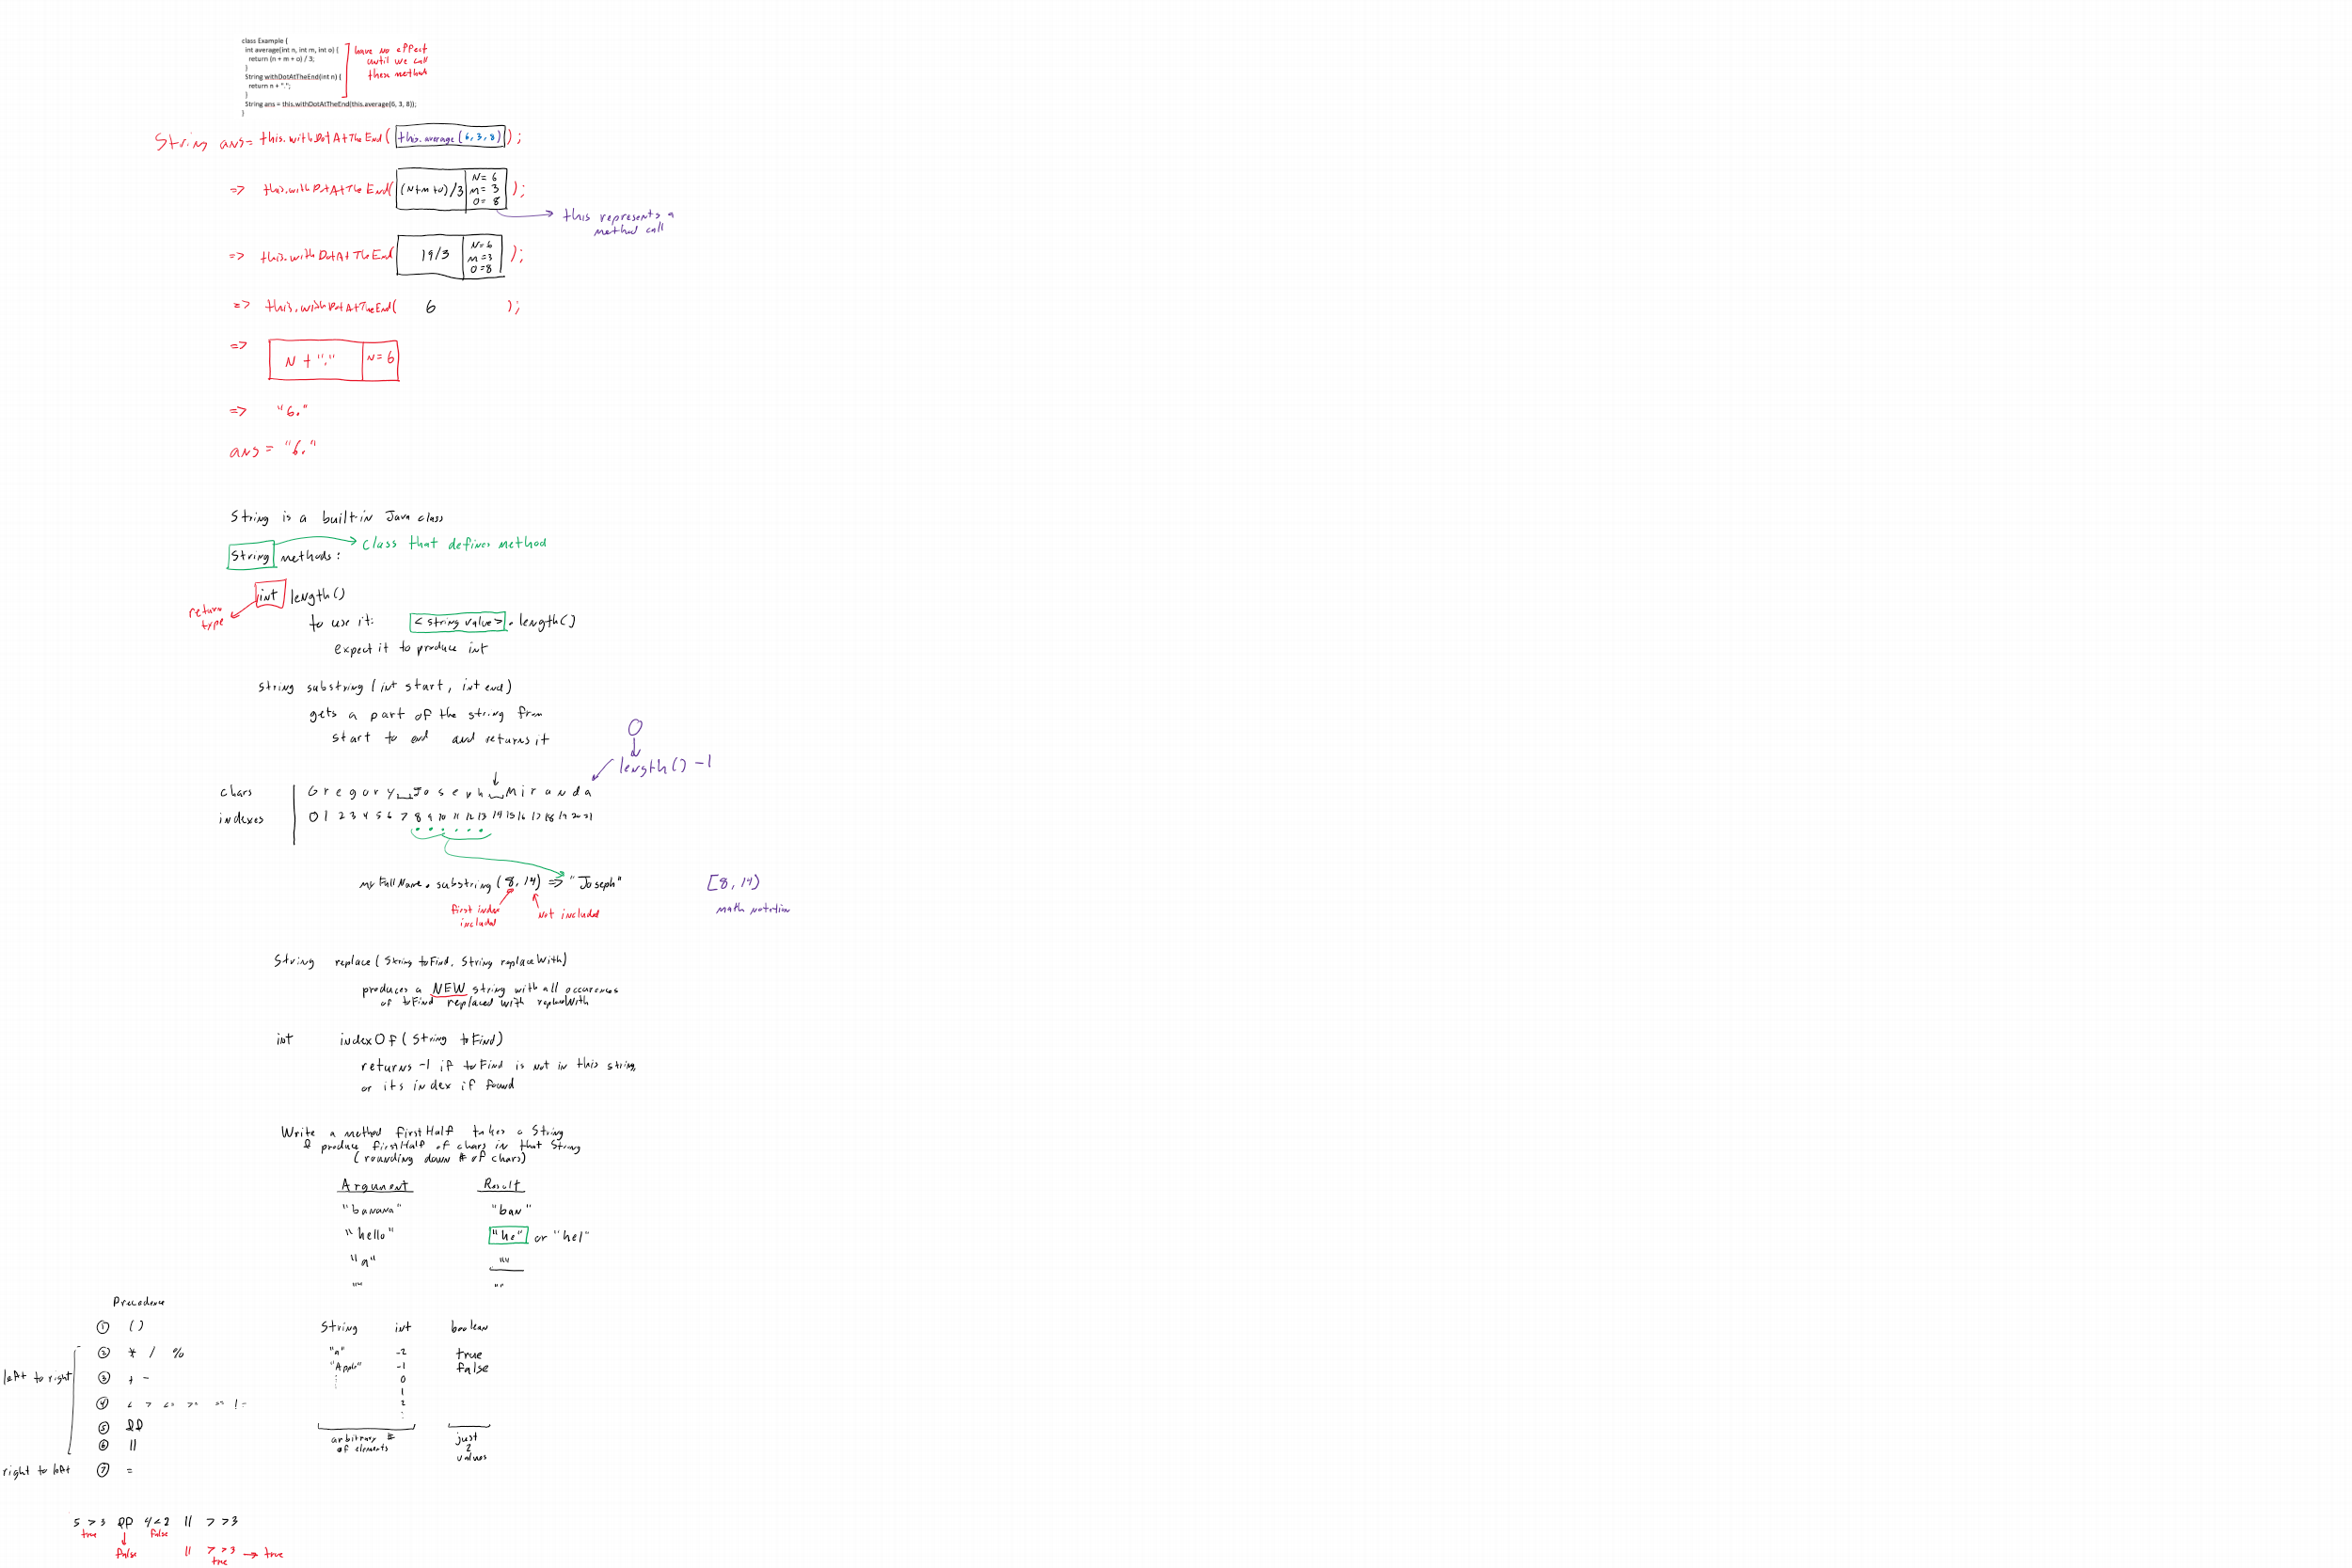 class Example {
int average(int n, int m, int o) {
return (n + m + o) / 3;
}
String withDotAtTheEnd(int n) {
return n + ".";
}
String ans = this.withDotAtTheEnd(this.average(6, 3, 8));
}
have no effect
until we call
these methods
String ans = this.withDotAtTheEnd( this.average(6, 3, 8) );
=> this.withDotAtTheEnd( (n+m+o)/3 n=6 m=3 o=8 );
this represents a
method call
=> this.withDotAtTheEnd( 19/3 n=6 m=3 o=8 );
=> this.withDotAtTheEnd( 6 );
=> n + "." n=6
=> "6."
ans = "6."
String is a built-in Java class
String methods:
class that defines method
int length()
return
type
to use it: <string value>.length()
expect it to produce int
String substring (int start, int end)
gets a part of the string from
start to end and returns it
0
length() -1
chars Gregory Joseph Miranda
indexes 0 1 2 3 4 5 6 7 8 9 10 11 12 13 14 15 16 17 18 19 20 21
myFullName.substring(8, 14) => "Joseph"
first index
included
not included
[8, 14)
math notation
String replace(String toFind, String replaceWith)
produces a NEW string with all occurences
of toFind replaced with replaceWith
int indexOf(String toFind)
returns -1 if toFind is not in this string,
or its index if found
Write a method firstHalf takes a String
& produce firstHalf of chars in that String
(rounding down # of chars)
Argument Result
"banana" "ban"
"hello" "he" or "hel"
"a" ""
"" ""
Precedence
① ()
② * / %
③ + -
④ < > <= >= == !=
⑤ &&
⑥ ||
⑦ =
left to right
right to left
String int boolean
"a" -2 true
"Apple" -1 false
0
1
2
arbitrary #
of elements
just
2
values
5 > 3 && 4 < 2 || 7 > 3
true false
false || 7 > 3 → true
true